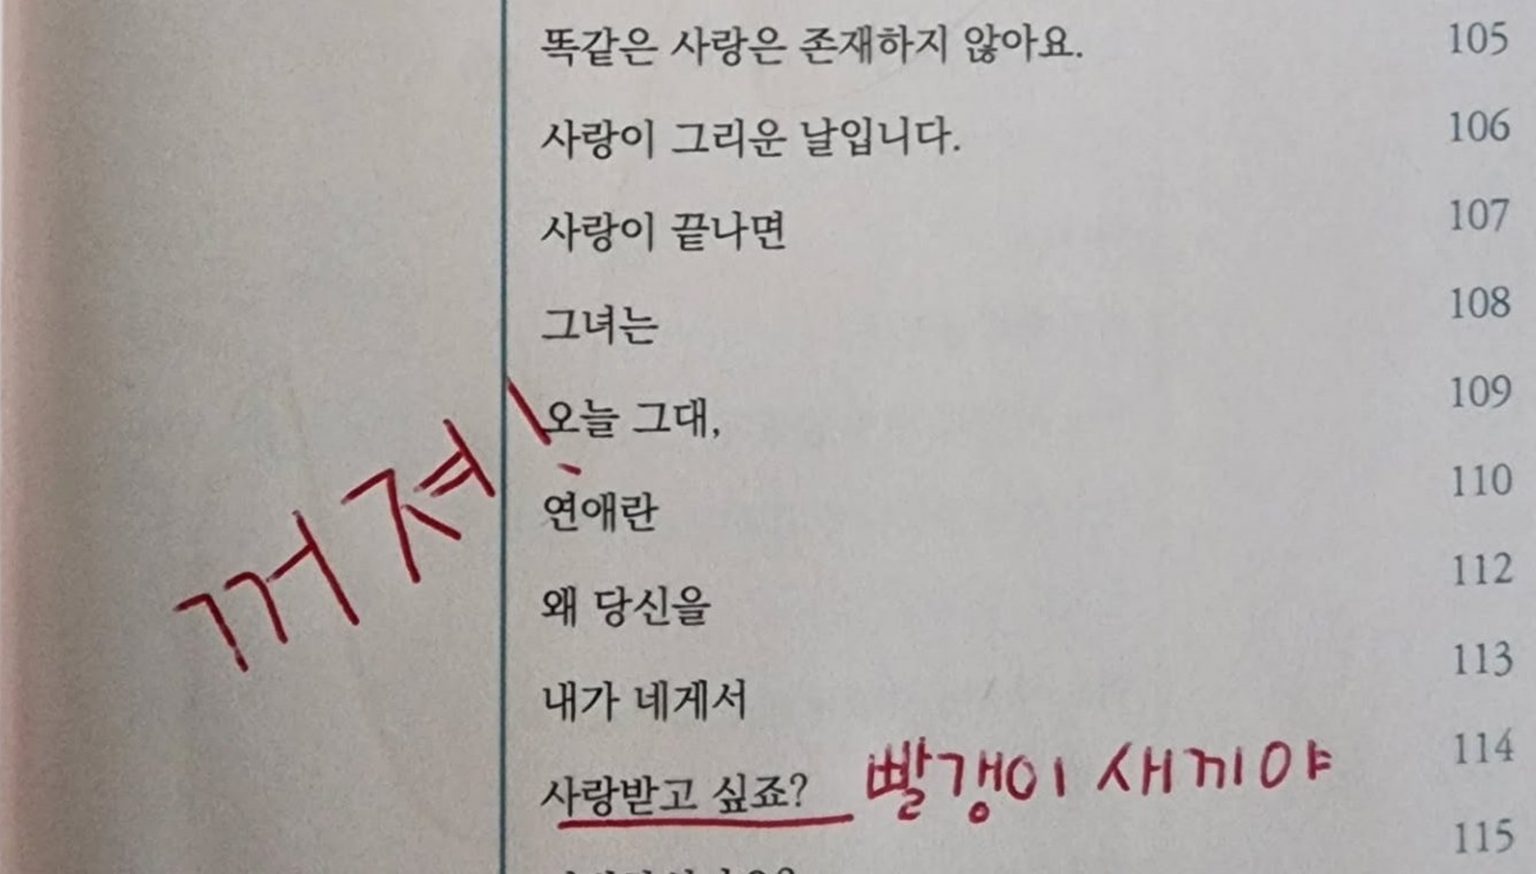 똑같은 사랑은 존재하지 않아요. 105
사랑이 그리운 날입니다. 106
사랑이 끝나면 107
그녀는 108
오늘 그대, 109
연애란 110
왜 당신을 112
내가 네게서 113
사랑받고 싶죠? 114
빨갱이 새끼야
115
꺼져!